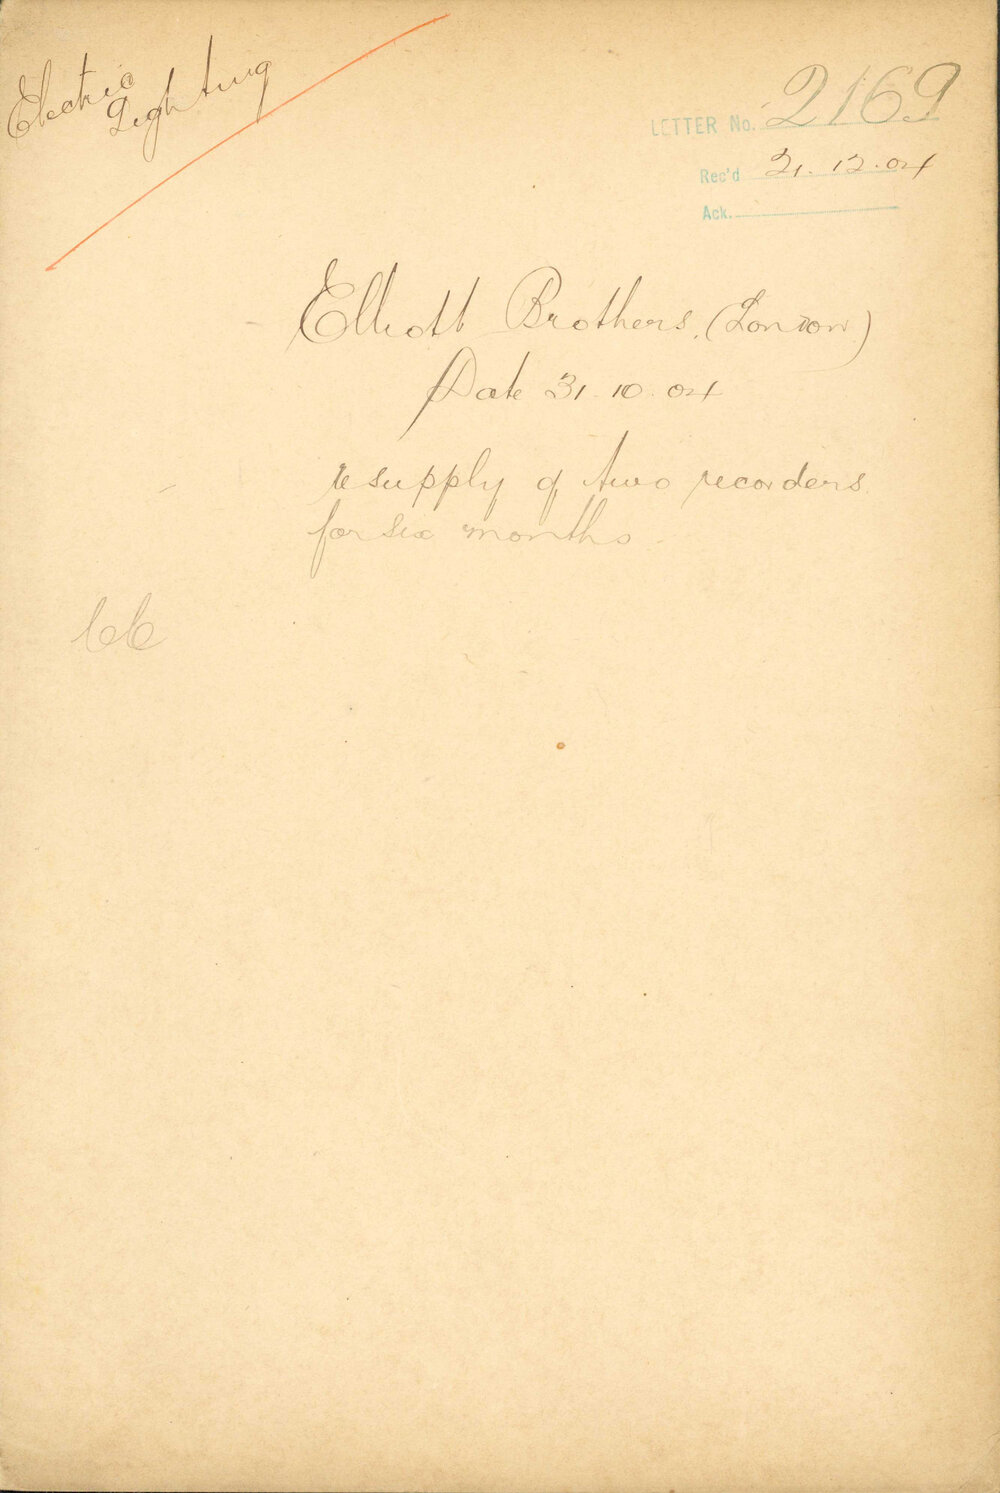 Electric
Lighting
LETTER No. 2169
Rec'd 21.12.04
Ack.
Elliott Brothers, (London)
Date 31.10.04
re supply of two recorders
for six months